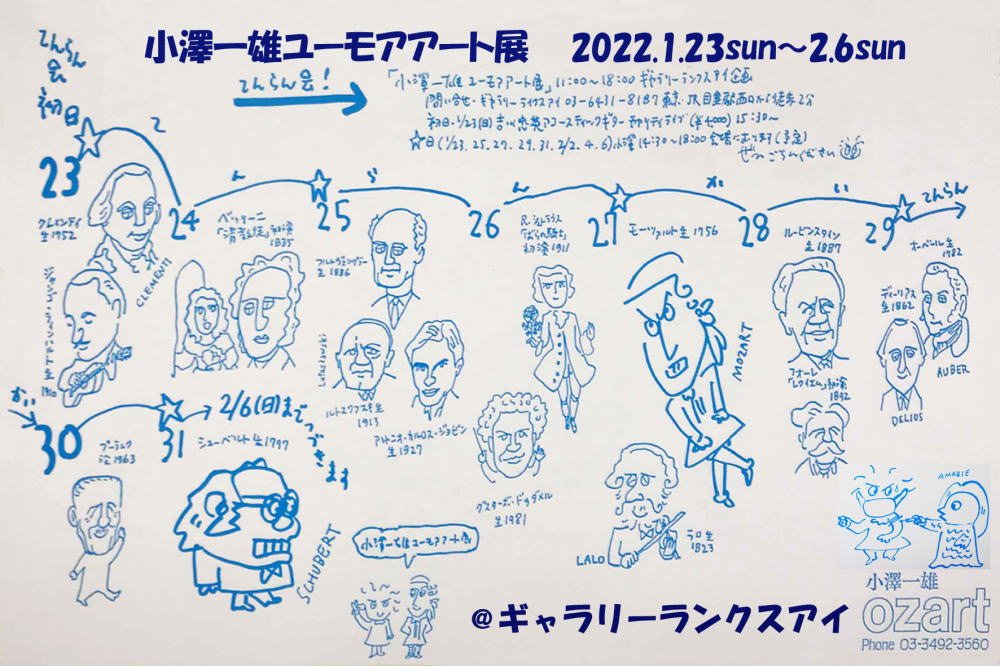 小澤一雄ユーモアアート展 2022.1.23sun～2.6sun
てんらん会初日
てんらん会!
「小澤一雄ユーモアアート展」11:00～18:00 ギャラリーランクスアイ企画
問い合せ・ギャラリーランクスアイ 03-6431-8187 東京・JR目黒駅西口から徒歩2分
初日・1/23(日)吉川忠英アコースティックギター (¥4,000) 15:30～
☆日(1/23.25.27.29.31.2/2.4.6)小澤14:30～18:00会場におります(予定)
ぜひごらんください
23
て
24
ん
25
ら
26
ん
27
か
28
い
29
てんらん
クレメンティ
生1752
CLEMENTI
ジャンゴ・ラインハルト生
1910
ベッリーニ
「清教徒」初演
1835
フルトヴェングラー
生1886
Lutosławski
ルトスワフスキ生
1913
アントニオ・カルロス・ジョビン
生1927
R.シュトラウス
「ばらの騎士」
初演1911
グスターボ・ドゥダメル
生1981
モーツァルト生1756
MOZART
LALO
ラロ生
1823
ルービンスタイン
生1887
フォーレ
「レクイエム」初演
1892
オーベール生
1782
AUBER
ディーリアス
生1862
DELIUS
かい
30
31
2/6(日)までつづきます
プーランク
没1963
シューベルト生1797
SCHUBERT
小澤一雄ユーモアアート展
AMABIE
@ギャラリーランクスアイ
小澤一雄
ozart
Phone 03-3492-3560